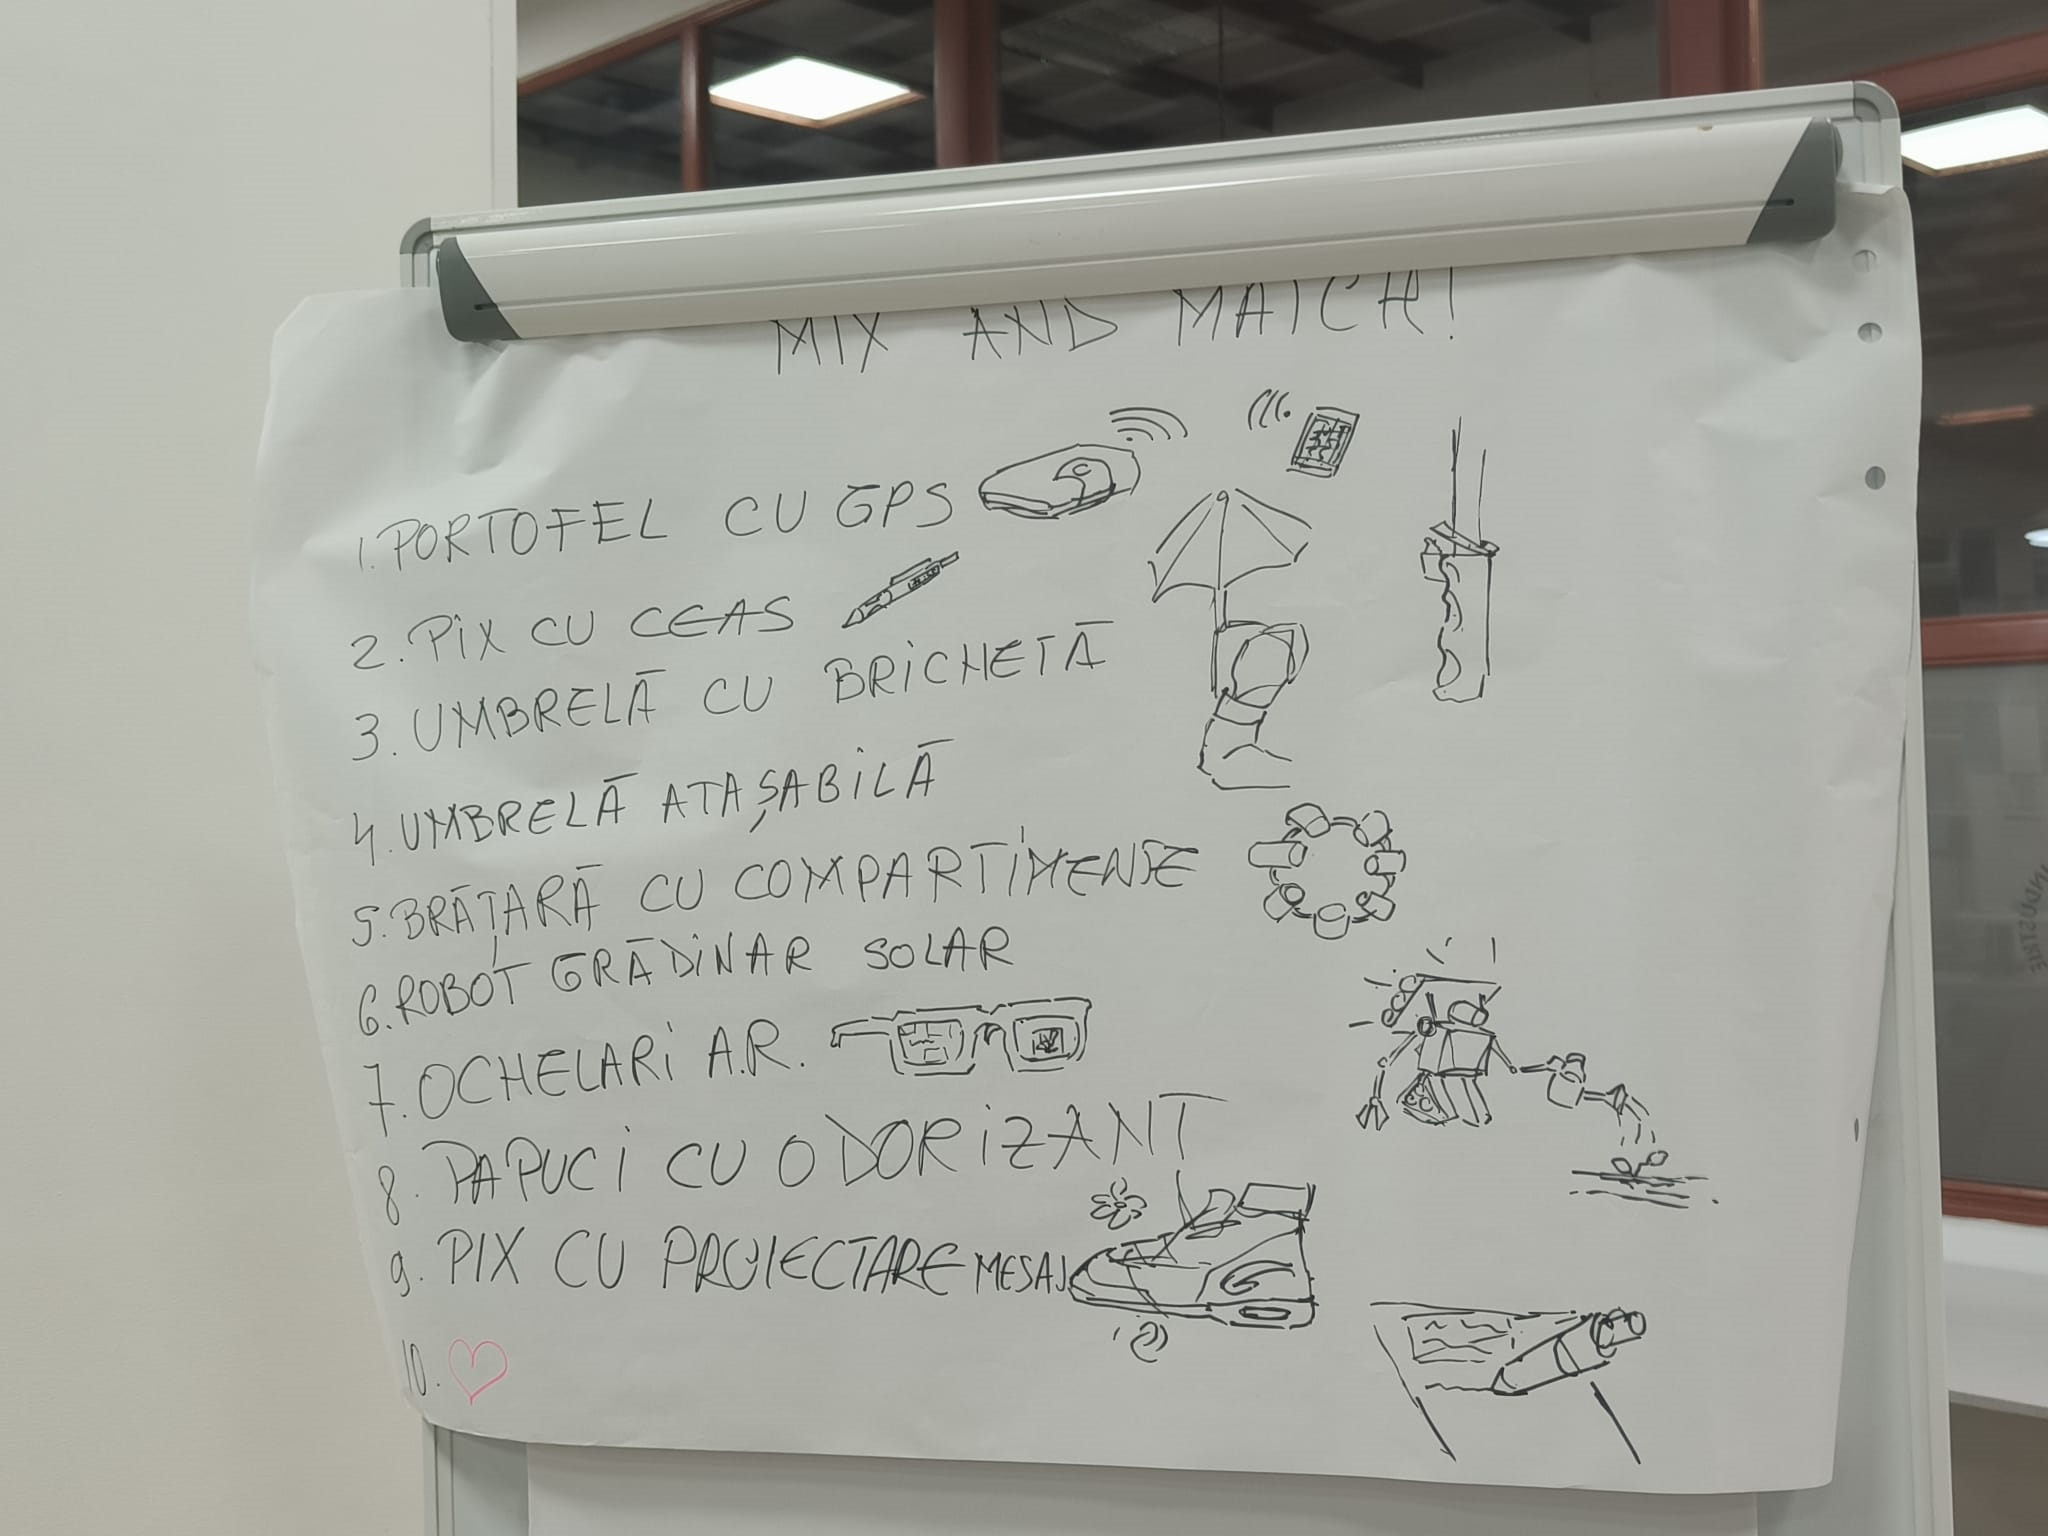 MIX AND MATCH!
1. PORTOFEL CU GPS
2. PIX CU CEAS
3. UMBRELĂ CU BRICHETĂ
4. UMBRELĂ ATAȘABILĂ
5. BRĂȚARĂ CU COMPARTIMENTE
6. ROBOT GRĂDINAR SOLAR
7. OCHELARI A.R.
8. PAPUCI CU ODORIZANT
9. PIX CU PROIECTARE MESAJ
10.
INDUSTRIE